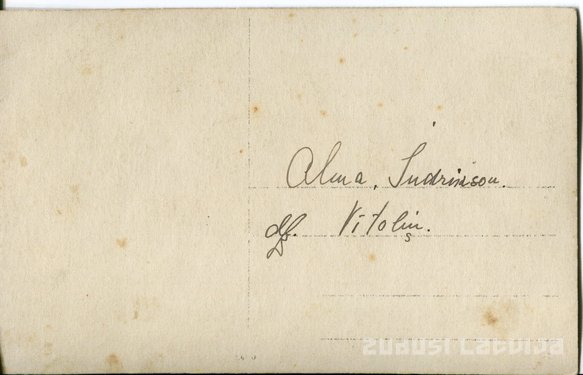 Alma, Indrikson.
dz. Vitoliņ.
zudusi Latvija